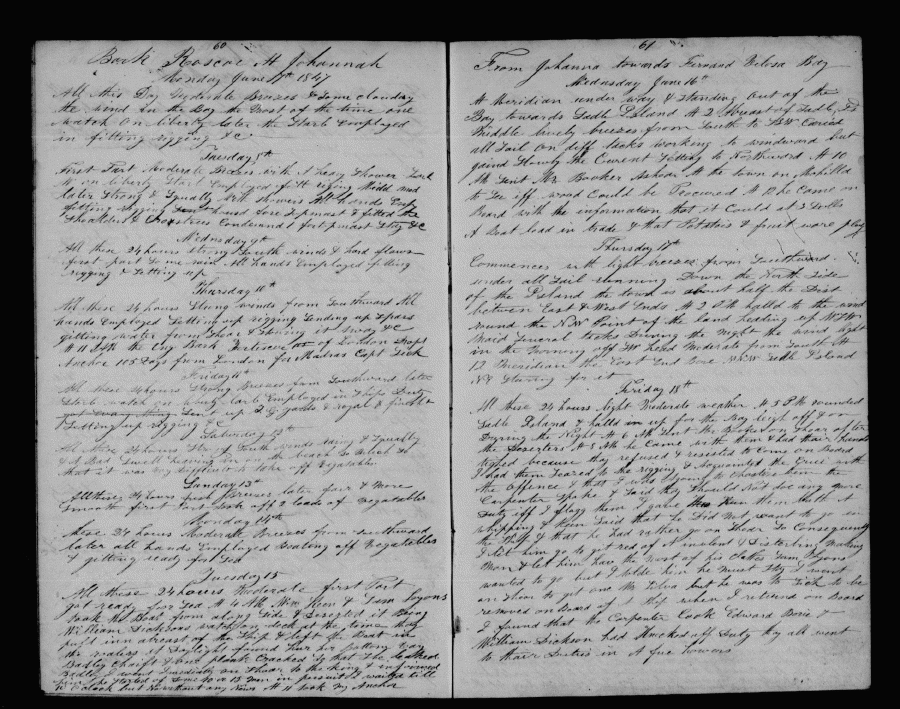 60
Bark Roscoe At Johannah
Monday June 7th 1847
All this Day Moderate Breezes & Some cloudy
the wind in the Bay the Most of the time one
Watch On liberty later the Starb Employed
in fitting rigging &c
Tuesday 8th
First Part Moderate Breezes with A heavy Shower Larb
W on liberty Starb Employed fitting rigging Middle and
later Strong & Squally with Showers All hands Emp
fitting rigging housed Fore Topmast & fitted the
Crosstrees Condemned Fortopmast Stay &c
Wednesday 9th
All these 24 hours Strong South winds & hard flaws
first part Some rain All hands Employed fitting
rigging & Setting up
Thursday 10th
All these 24 hours Strong winds from Southward All
hands Employed Setting up rigging Sending up Spars
gitting water from Shear & Stowing it Away &c
At 11 AM the Eng Bark of London Dropt
Anchor 105 Days from London for Madras Capt
Friday 11th
All these 24 hours Strong Breezes from Southward later
Starb watch on liberty Larb Employed in Ships Duty
Sent up yards & royal & finisht
Setting up rigging &c
Saturday 12th
All these 24 hours Strong South winds & Squally
& A Bad Swell heaving in on the beach So Much So
that it was very difficult to take off Vegatables
Sunday 13th
All these 24 hours fresh Breezes later fair & More
Smooth first Part took off 2 loads of Vegatables
Monday 14th
these 24 hours Moderate Breezes from Southward
later all hands Employed Boating off Vegatables
& gitting ready for Sea
Tuesday 15
All these 24 hours Moderate first Part
got ready for Sea At 4 AM Wm Keen & Sam Lyons
took the Boat from along Side & Deserted it Being
William Dicksons watch on deck at the time they
pull inn abreast of the Ship & left the Boat in
the waters At Daylight found her
&one plank Cracked
went immediatly on Shear to the king & informed
him he started of some 10 or 15 men in persuit & waited till
10 Oclock but No News At 11 took My Anchor
61
From Johanna towards Fernand Velosa Bay
Wednesday June 16th
At Meridian under way & Standing Out of the
Bay towards Sadle Island At 2 Abreast of Sadle Isd
Middle lively breezes from South to SSW Caried
all Sail On diff tacks working to windward but
gaind Slowly the Current Setting to Northward At 10
AM Sent Mr Booker Ashore At the town on Mohilla
to See iff wood Could be Procured At 12 he Came on
Board with the information that it Could at 3 Dolls
A Boat load in trade & that Potatois & fruit were plenty
Thursday 17th
Commences with light breezes from Southward
under all Sail running Down the North Side
of the Island the town is about half the Dist
between East & West Ends At 2 PM halld to the wind
round the NW Point of the land heading up WSW
Maid Several tacks During the Night the wind light
in the Morning off the land Moderate from South At
12 Meridian the East End Bore Sadle Island
Stearing for it
Friday 18th
All these 24 hours light Moderate weather At 5 PM rounded
Sadle Island & halld in up for the Bay leigh off & on
During the Night At 6 AM Sent Mr Booker on Shear after
the Deserters At 1 AM he Came with them & had their hands
tighed because they refused & resisted to Come on Board
I had them Seazed to the rigging & Acquainted the Crew with
the Offence & that I was Agoing to Punish them the
Carpenter Spoke & Said they Should Not doe any more
Duty iff I flogg them I gave Keen them both A
whipping & Keen Said that he Did Not want to go in
the Ship & that he had rather go on Shear So Consequently
I let him go to git red of A violent & Disterbing Making
Man & let him have the Most of his Clothes Sam Lyons
wanted to go but I tolde him he must Stay I went
on Shear to get one Mr Silva but he was to Sick to be
removed on Board of A Ship when I returnd on Board
I found that the Carpenter Cook Edward Borie &
William Dickson had Knocked off Duty they all went
to their Duties in A fue howrs